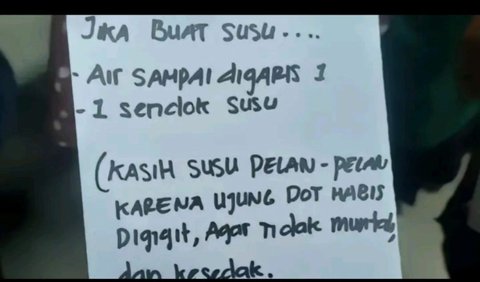 JIKA BUAT SUSU....
- AIR SAMPAI digARIS 1
- 1 sendok susu
(KASIH SUSU PELAN-PELAN
KARENA UJUNG DOT HABIS
Digigit, Agar Tidak muntah,
dan kesedak.